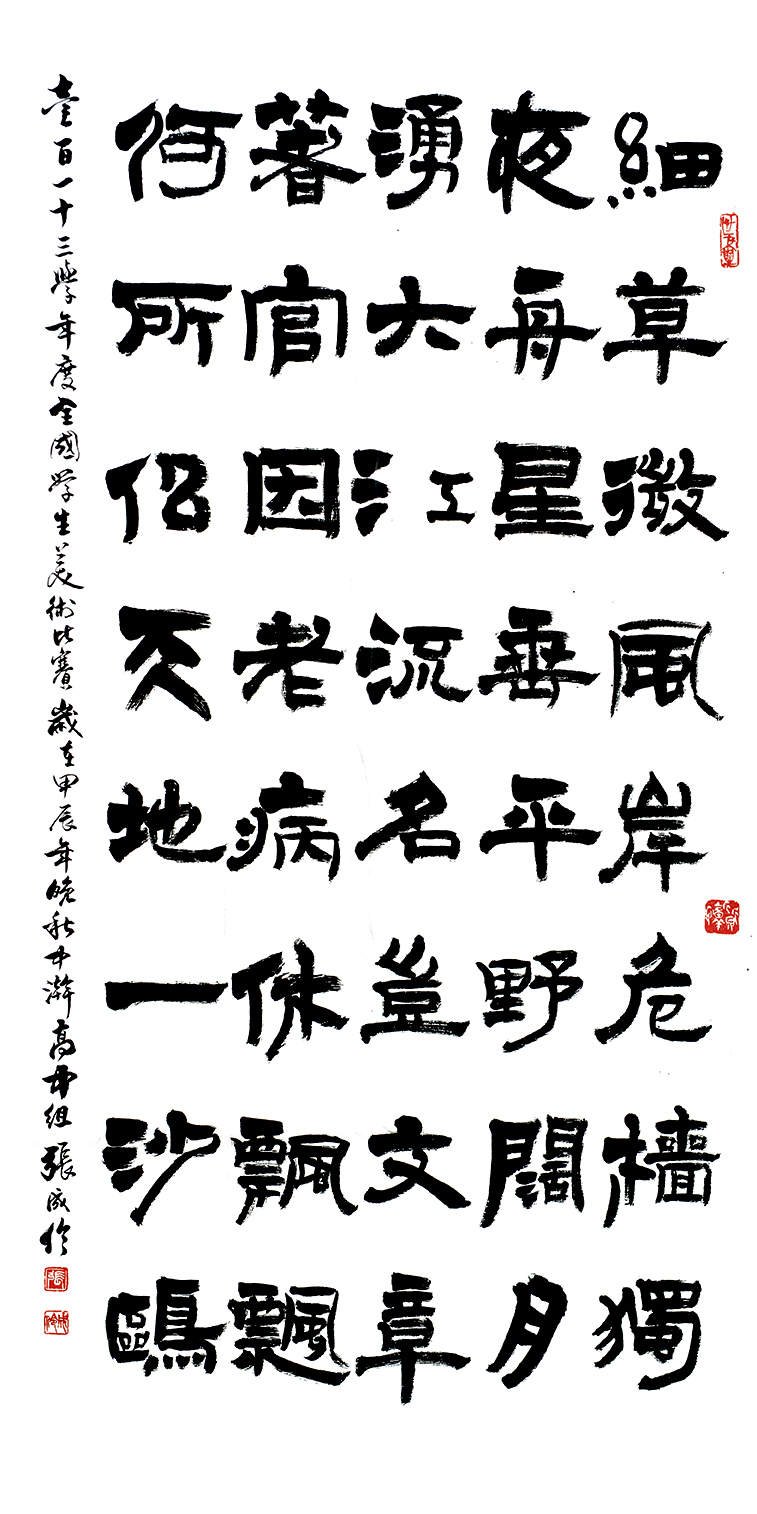 細草微風岸危檣獨
夜舟星垂平野闊月
湧大江流名豈文章
著官因老病休飄飄
何所似天地一沙鷗
壹百一十三學年度全國學生美術比賽歲在甲辰年晚秋中澣高中組張成伶